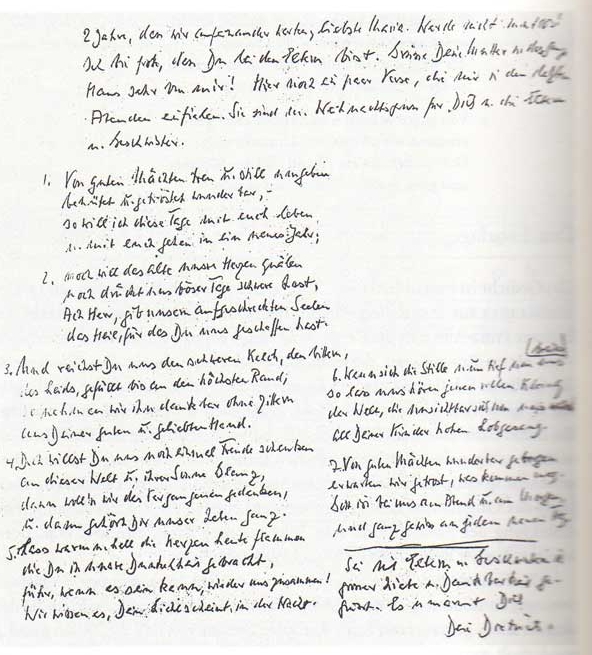 2 Jahre, den wir aufeinander warten, liebste Maria. Werde nicht mutlos!
Ich bin froh, dass Du bei den Eltern bist. Grüsse Deine Mutter u. das ganze
Haus sehr von mir! Hier noch ein paar Verse, die mir in den letzten
Abenden einfielen. Sie sind der Weihnachtsgruss für Dich u. die Eltern
u. Geschwister.
1. Von guten Mächten treu u. still umgeben
behütet u. getröstet wunderbar, –
so will ich diese Tage mit euch leben
u. mit euch gehen in ein neues Jahr;
2. noch will das alte unsre Herzen quälen
noch drückt uns böser Tage schwere Last,
Ach Herr, gib unsern aufgescheuchten Seelen
das Heil, für das Du uns geschaffen hast.
3. Und reichst Du uns den schweren Kelch, den bittern,
des Leids, gefüllt bis an den höchsten Rand,
so nehmen wir ihn dankbar ohne Zittern
aus Deiner guten u. geliebten Hand.
4. Doch willst Du uns noch einmal Freude schenken
an dieser Welt u. ihrer Sonne Glanz,
dann woll'n wir des Vergangenen gedenken,
u. dann gehört Dir unser Leben ganz.
5. Lass warm u. hell die Kerzen heute flammen
die Du in unsre Dunkelheit gebracht,
führ, wenn es sein kann, wieder uns zusammen!
Wir wissen es, Dein Licht scheint in der Nacht.
6. Wenn sich die Stille nun tief um uns
so lass uns hören jenen vollen Klang
der Welt, die unsichtbar sich um uns
all Deiner Kinder hohen Lobgesang.
7. Von guten Mächten wunderbar geborgen
erwarten wir getrost, was kommen mag.
Gott ist bei uns am Abend u. am Morgen
und ganz gewiss an jedem neuen Tag.
Sei mit Eltern u. Geschwistern in
grosser Liebe u. Dankbarkeit ge-
grüsst. Es umarmt Dich
Dein Dietrich.